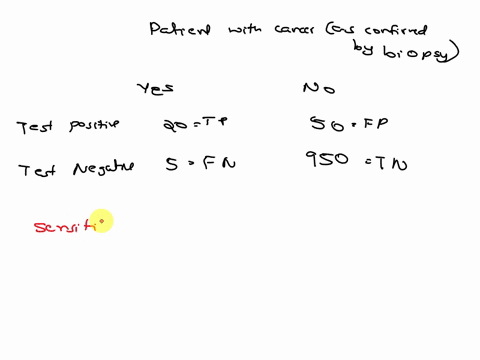 Patient with cancer (as confirmed
by biopsy)
Yes No
Test positive 20 = TP 50 = FP
Test Negative 5 = FN 950 = TN
Sensiti